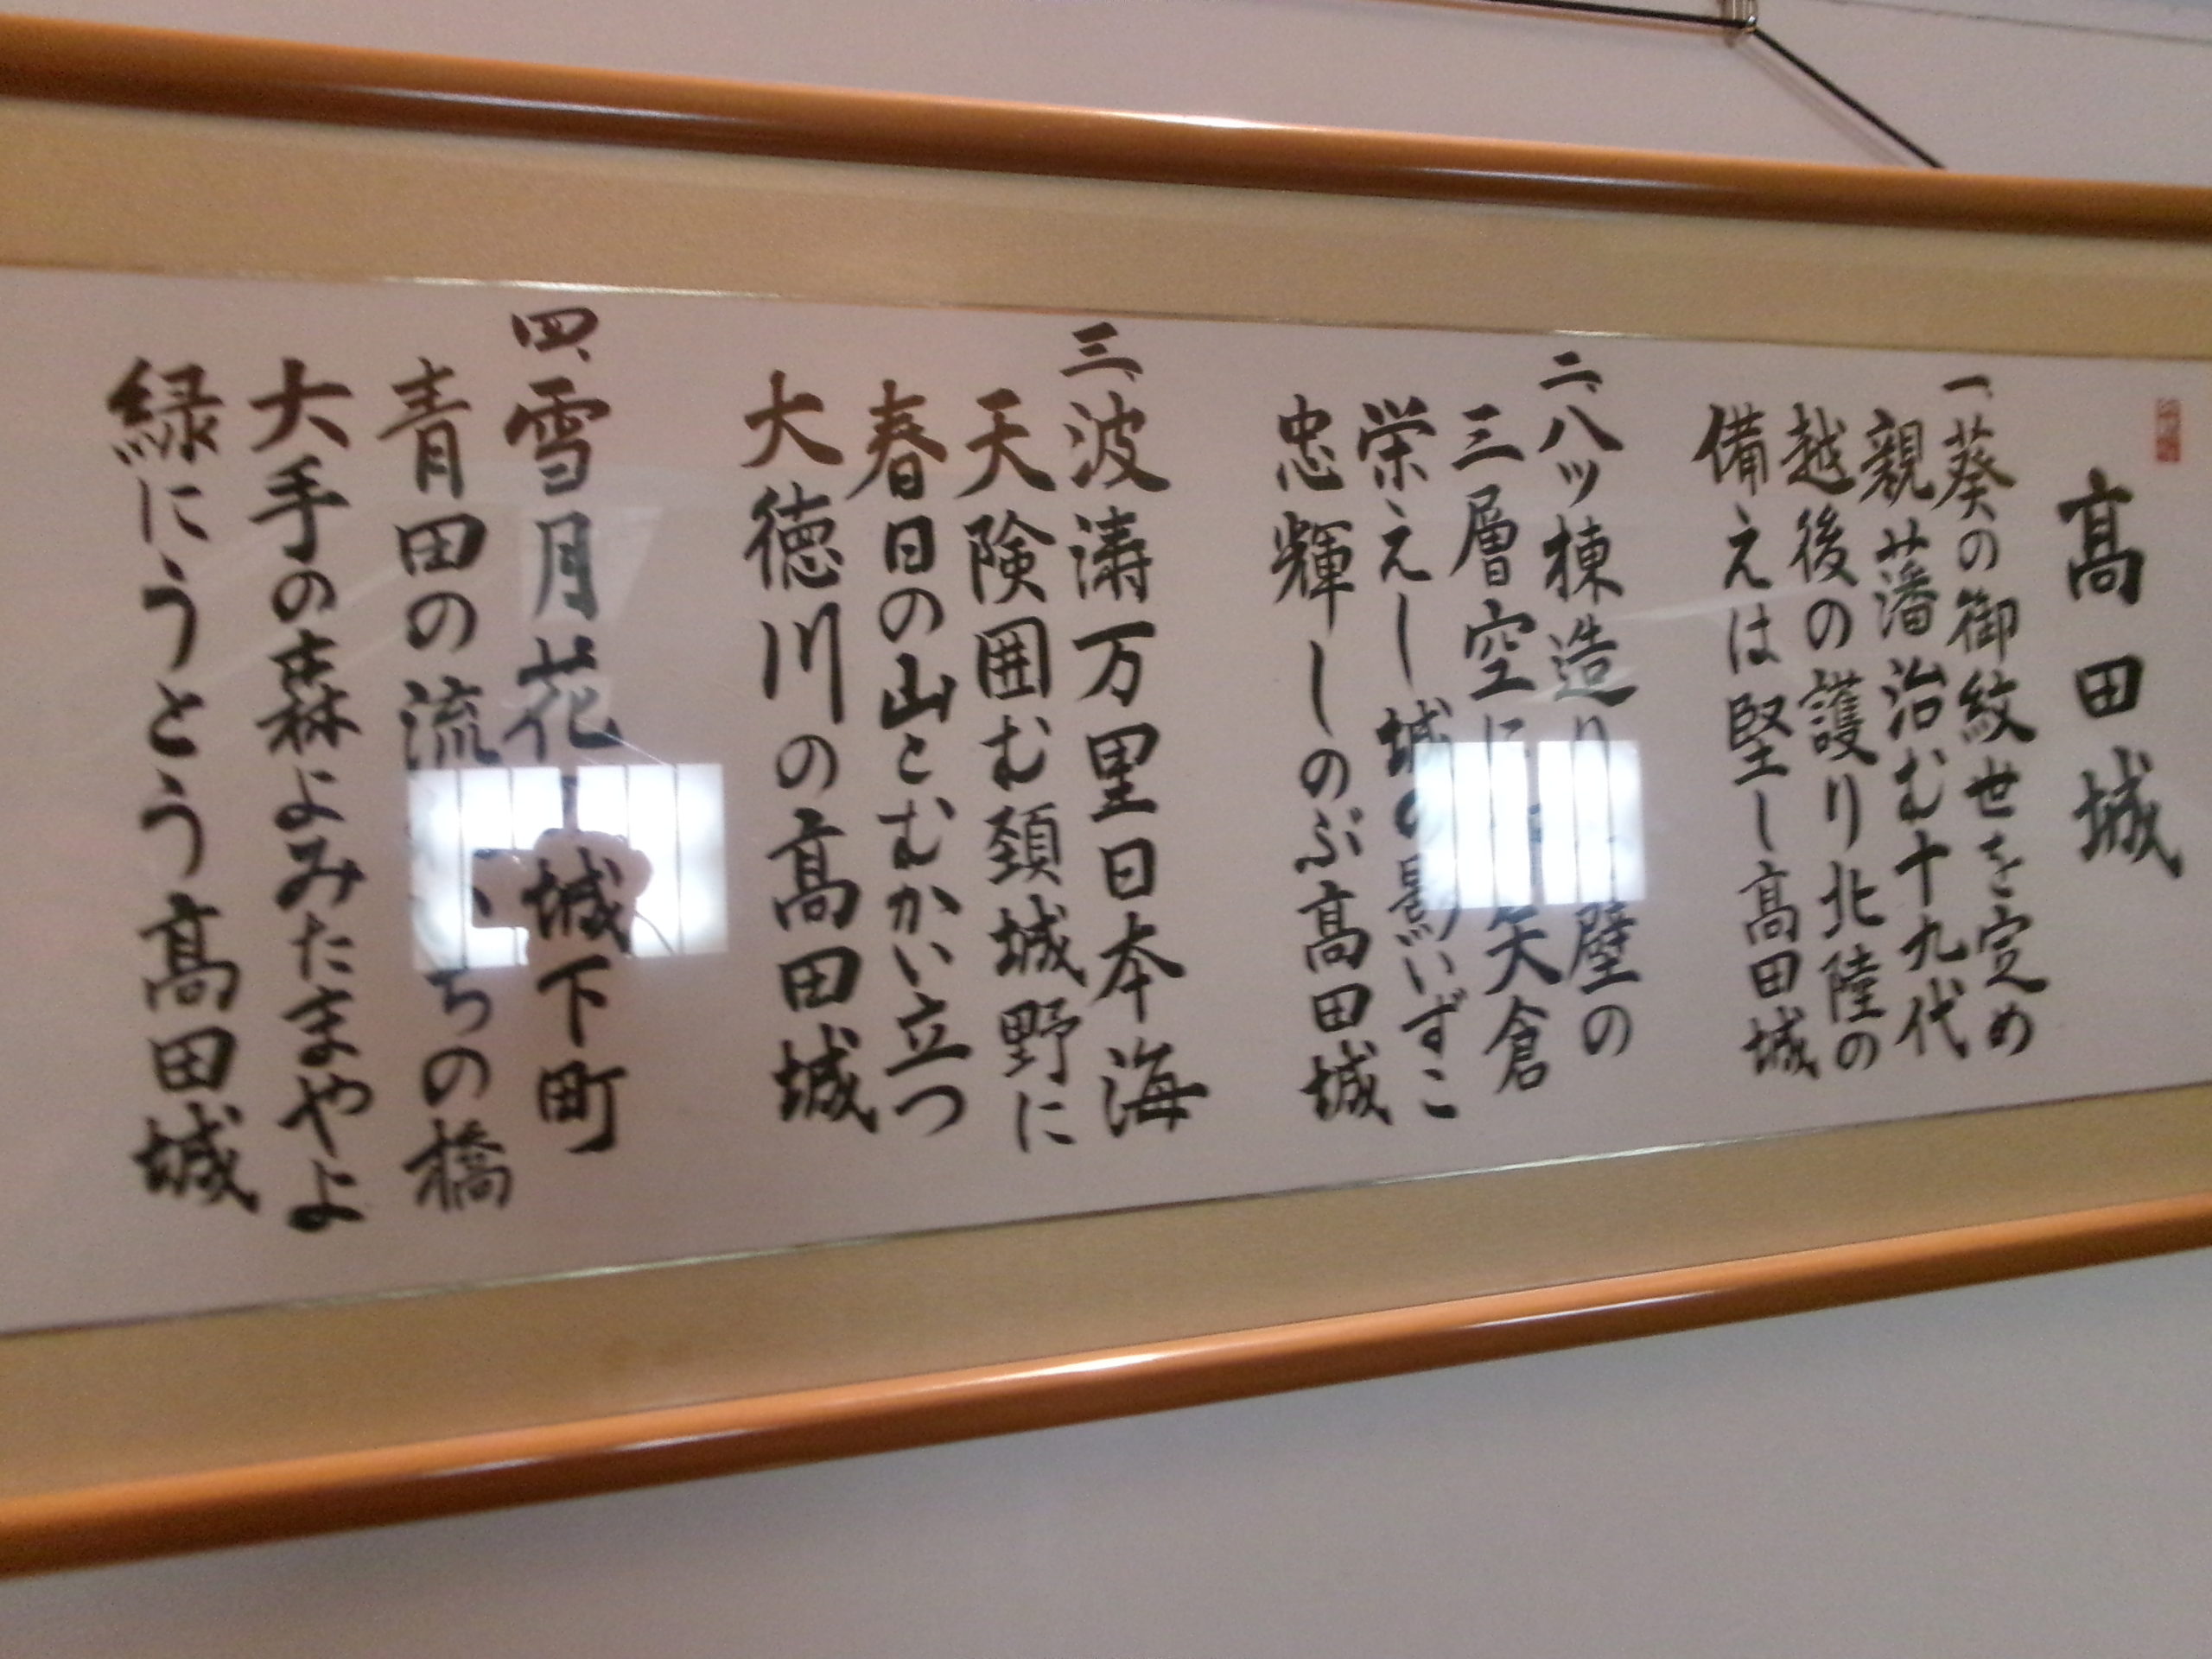 高田城
一、葵の御紋世を定め
親藩治む十九代
越後の護り北陸の
備えは堅し高田城
二、八ツ棟造り壁の
三層空に矢倉
栄えし城の影いずこ
忠輝しのぶ高田城
三、波涛万里日本海
天険囲む頚城野に
春日の山とむかい立つ
大徳川の高田城
四、雪月花し城下町
青田の流ちの橋
大手の森よみたまやよ
緑にうとう高田城